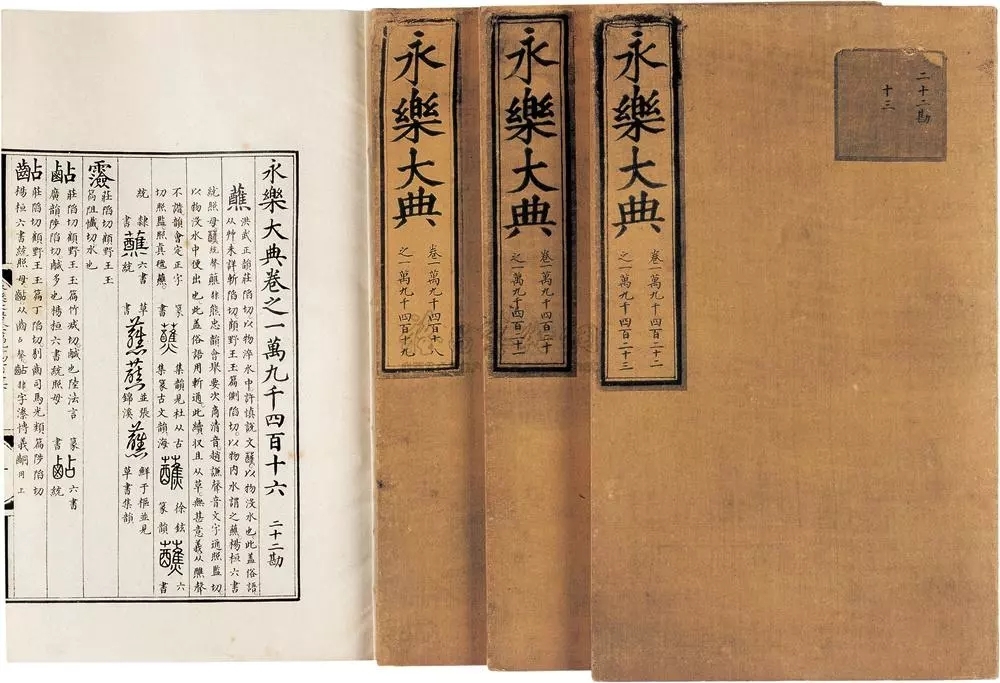 二十二勘
十三
永樂大典
卷一萬九千四百二十二
之一萬九千四百二十三
永樂大典
卷一萬九千四百二十
之一萬九千四百二十一
永樂大典
卷一萬九千四百十八
之一萬九千四百十九
永樂大典卷之一萬九千四百十六 二十二勘
蘸
洪武正韻莊陷切以物淬水中許慎說文醮以物沒水也此蓋俗語
从艸未詳斬陷切顧野王玉篇側陷切以物內水謂之蘸楊桓六書
統照母醮統聲蘸隸熊忠韻會舉要次商清音趙謙聲音文字通照監切
以物沒水中便出也此蓋俗語用斬通此續收且从草無甚意義从醮聲
不諧韻會定正字
切照監照真蘸
篆書
集韻見杜从古
集篆古文韻海
徐鉉
篆韻
六書
統
隸書
六書統
草書
並張錦溪
鮮于樞並見
草書集韻
莊陷切顧野王玉
篇阻懺切水也
莊陷切顧野王玉篇竹咸切鹹也陸法言
廣韻陟陷切鹹多也楊桓六書統照母
篆書
六書
統
莊陷切顧野王玉篇丁陷切剔齒司馬光類篇陟陷切
楊桓六書統照母